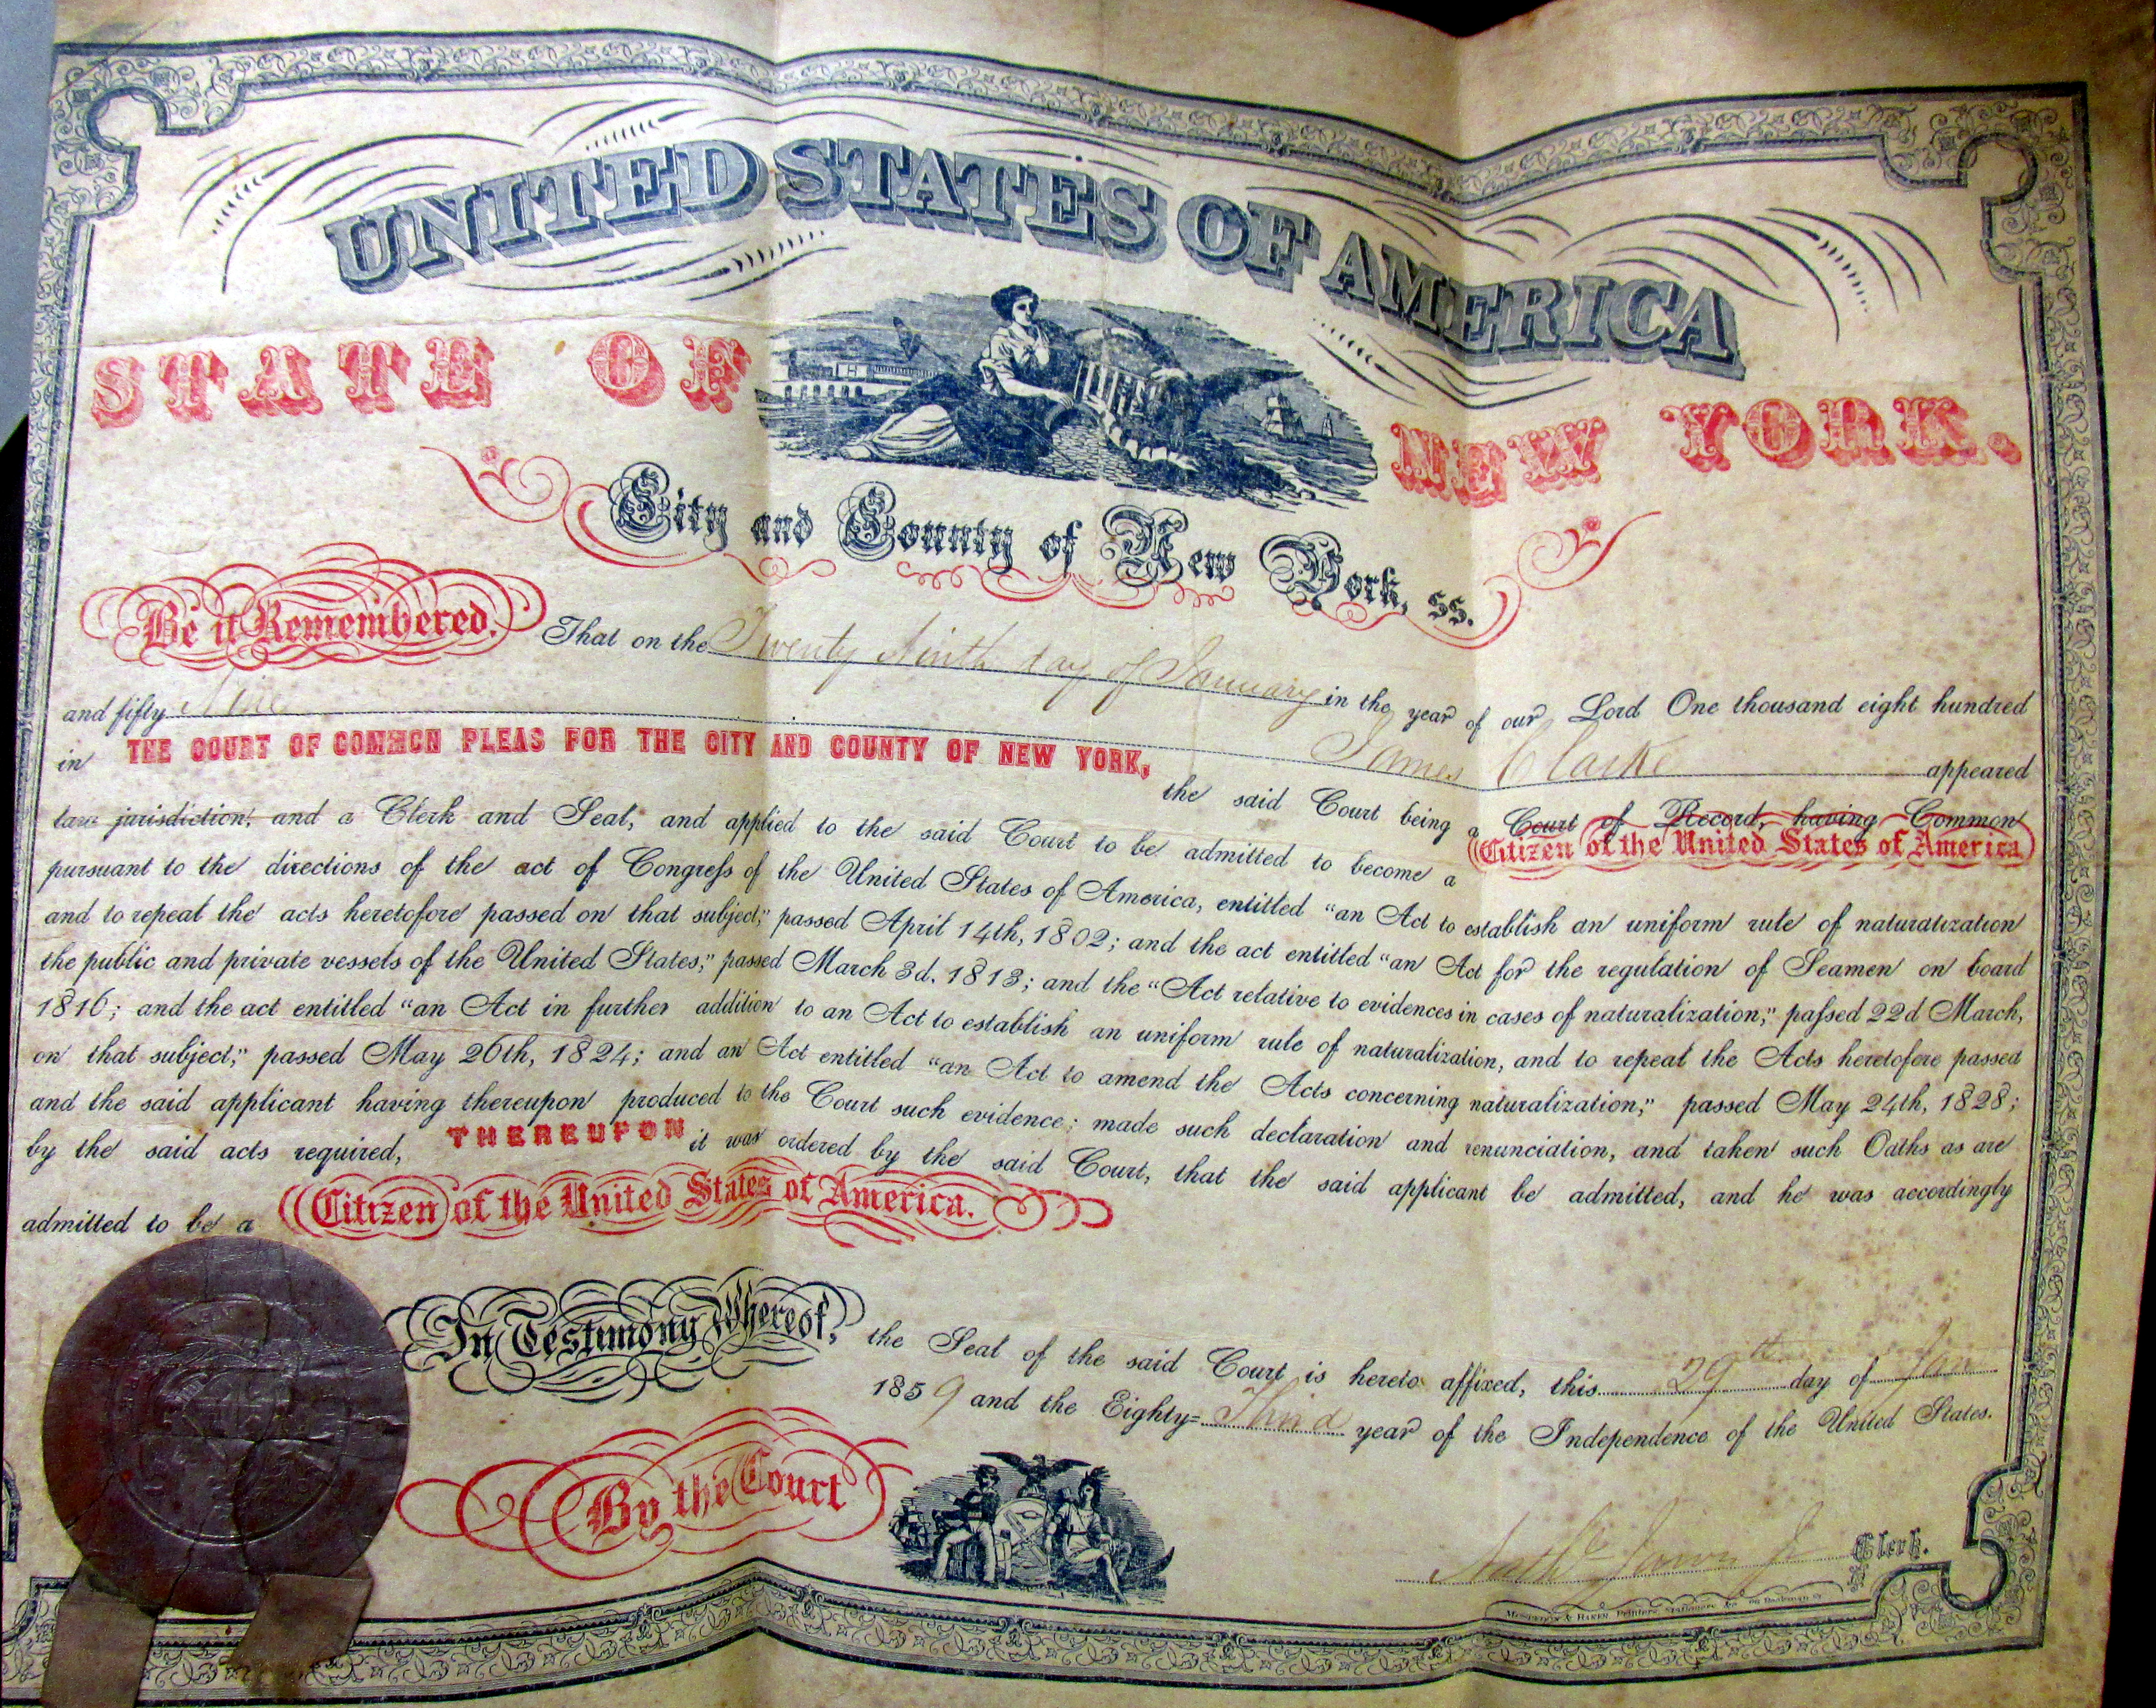 UNITED STATES OF AMERICA
STATE OF NEW YORK.
City and County of New York, ss.
Be it Remembered, That on the Twenty Ninth day of January in the year of our Lord One thousand eight hundred
and fifty Nine James Clarke appeared
in THE COURT OF COMMON PLEAS FOR THE CITY AND COUNTY OF NEW YORK, the said Court being a Court of Record, having Common
law jurisdiction, and a Clerk and Seal, and applied to the said Court to be admitted to become a Citizen of the United States of America
pursuant to the directions of the act of Congress of the United States of America, entitled "an Act to establish an uniform rule of naturalization
and to repeal the acts heretofore passed on that subject," passed April 14th, 1802; and the act entitled "an Act for the regulation of Seamen on board
the public and private vessels of the United States," passed March 3d. 1813; and the "Act relative to evidences in cases of naturalization," passed 22d March,
1816; and the act entitled "an Act in further addition to an Act to establish an uniform rule of naturalization, and to repeal the Acts heretofore passed
on that subject," passed May 26th, 1824; and an Act entitled "an Act to amend the Acts concerning naturalization," passed May 24th, 1828;
and the said applicant having thereupon produced to the Court such evidence; made such declaration and renunciation, and taken such Oaths as are
by the said acts required, THEREUPON it was ordered by the said Court, that the said applicant be admitted, and he was accordingly
admitted to be a Citizen of the United States of America.
In Testimony Whereof, the Seal of the said Court is hereto affixed, this 29th day of Jan
1859 and the Eighty=Third year of the Independence of the United States.
By the Court
Nathl Jarvis Jr Clerk.
Printers, Stationers